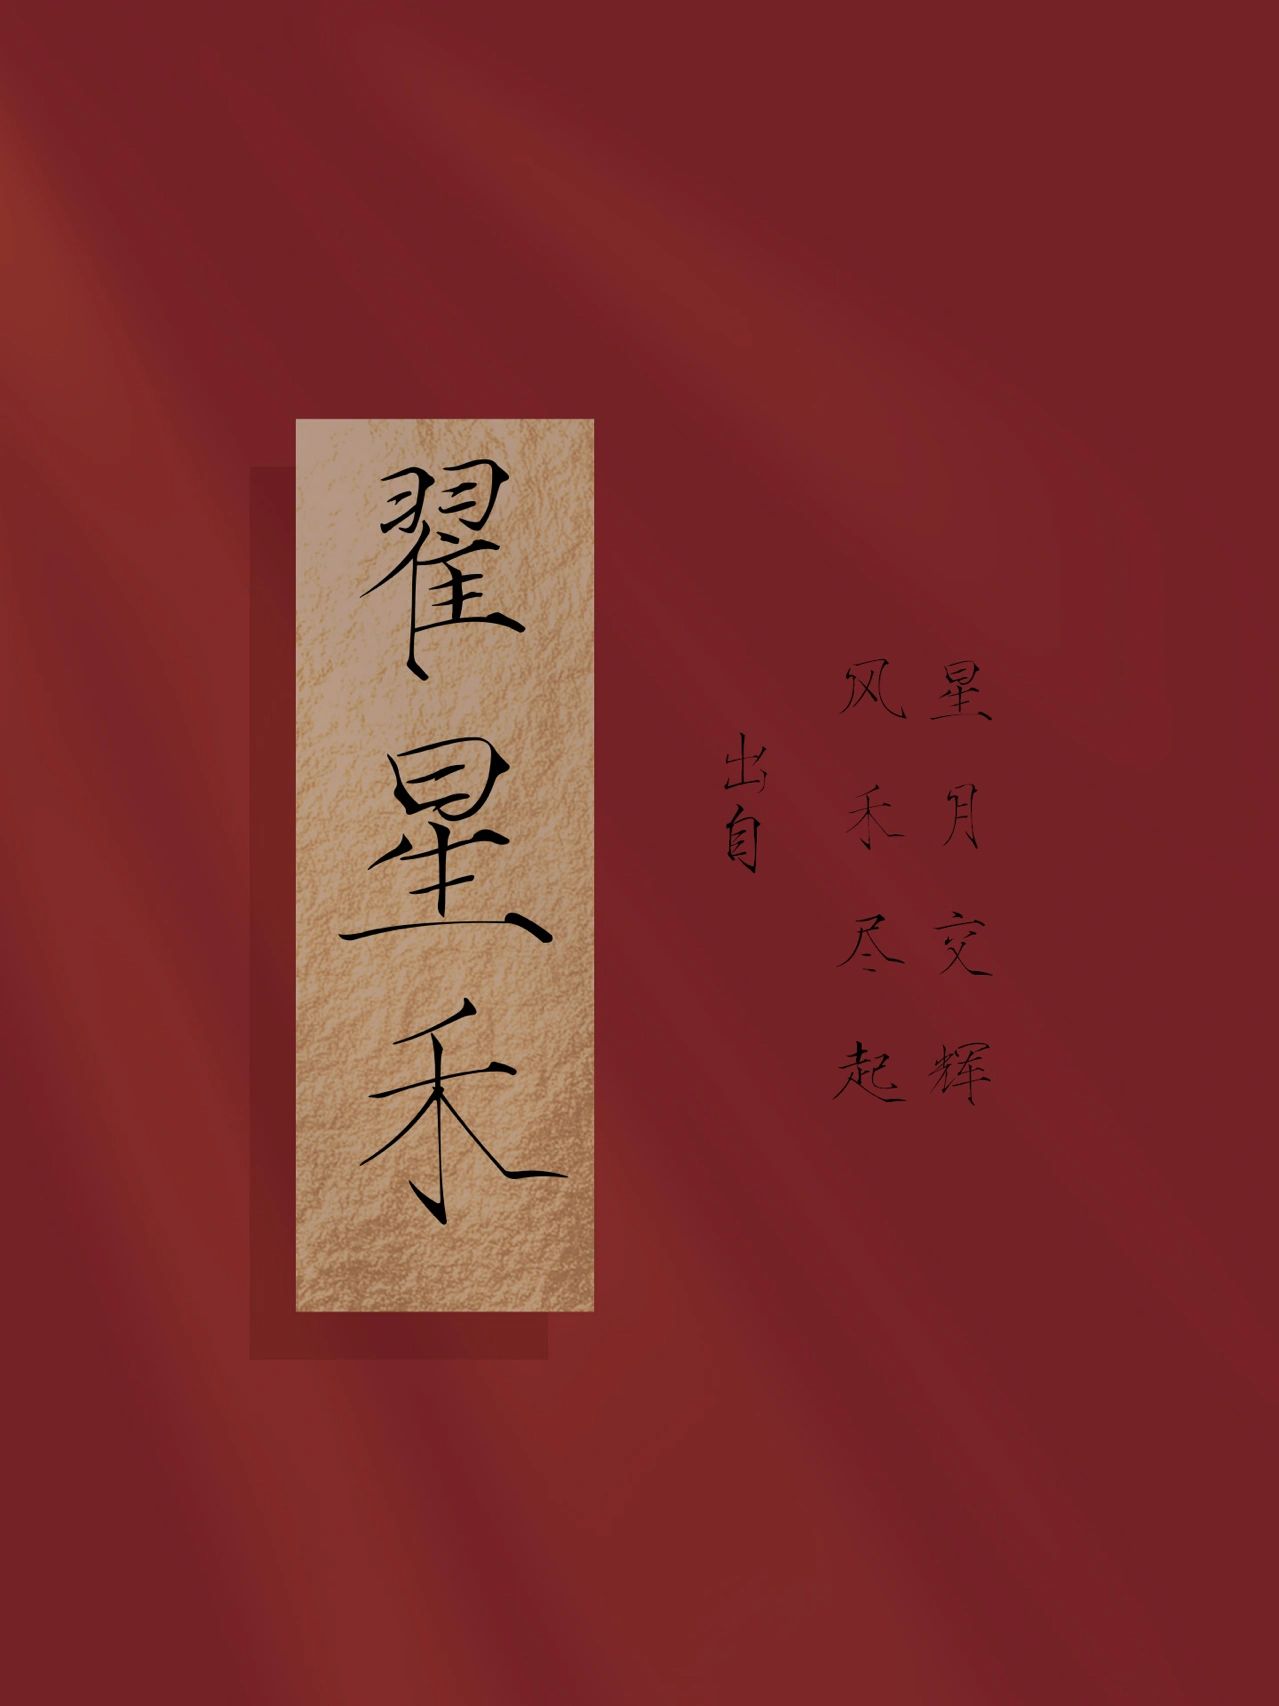 翟星禾
出自
星月交辉
风禾尽起